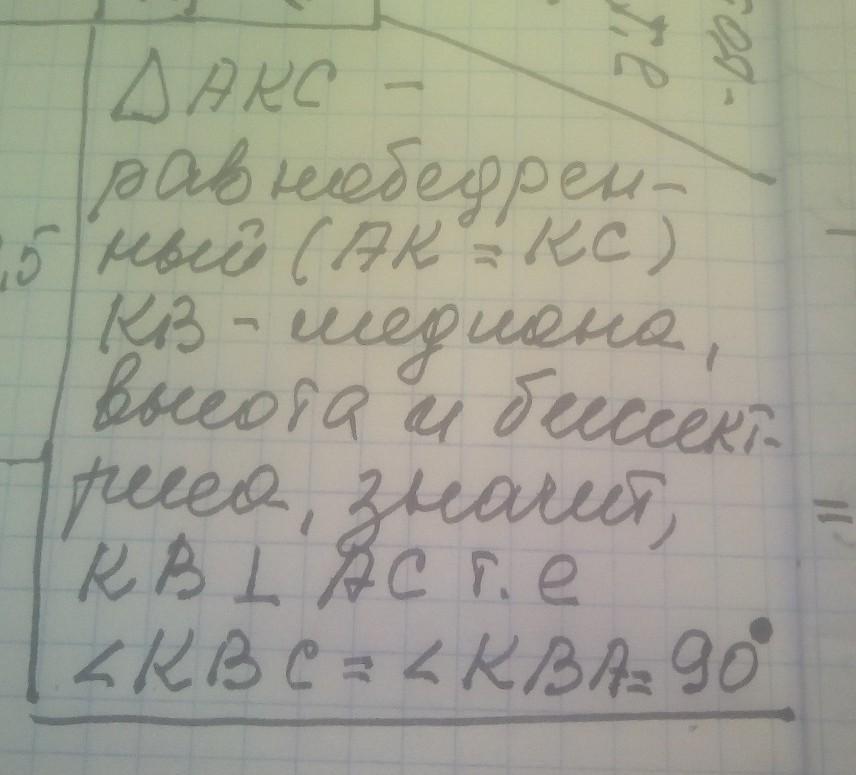 △AKC -
равнобедрен-
ный (AK = KC)
KB - медиана,
высота и биссект-
риса, значит,
KB ⊥ AC т. е
∠KBC = ∠KBA = 90°
,5
=